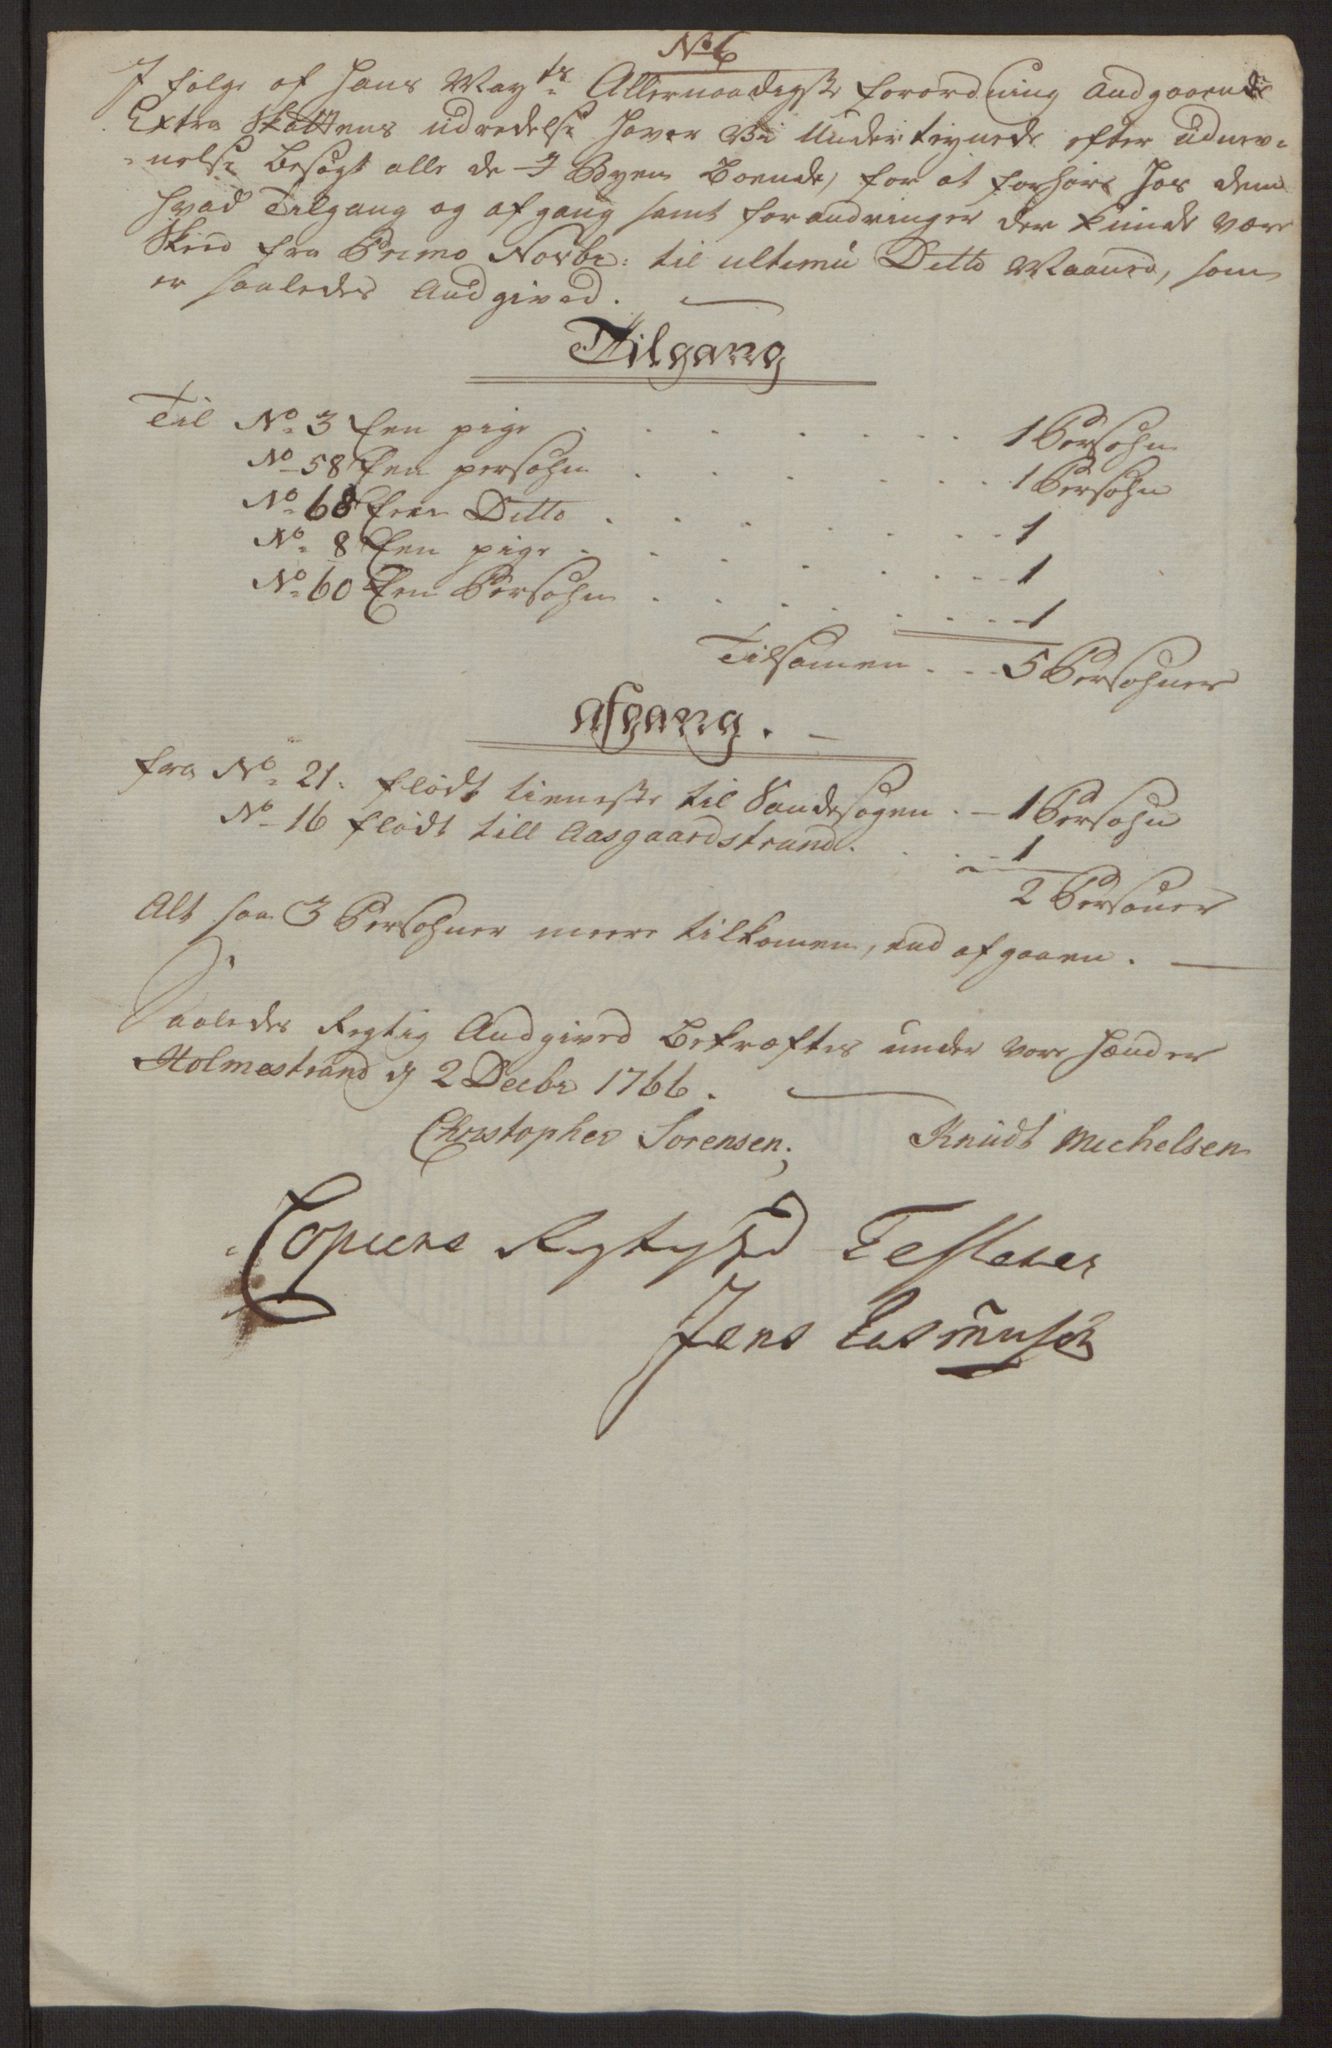 No 6
I følge af Hans Mayts: Allernaadigste forordning andgaaende
Extra Skattens udredelse haver vi Undertegnede efter udnev-
nelse besøgt alle de I Byen Boende, for at forhøre hos dem
hvad Tilgang og afgang samt forandringer der kunde være
Skeed fra Primo Novbr: til ultimu Ditto Maaned, som
er saaledes Andgived.
Tilgang
Til No 3 Een pige . . . 1 Persohn
No 58 Een persohn . . . 1 Persohn
No 68 Een Ditto . . . 1
No 8 Een pige . . . 1
No 60 Een Persohn . . . 1
Tilsamen . . . 5 Persohner
Afgang.
fra No 21. flødt tieneste til Sandesogen . 1 Persohn
No 16 flødt till Aasgaardstrand. . . 1
2 Personer
Alt saa 3 Persohner meere tilkomen, end afgaaen.
Saaledes Rigtig Andgived Bekræftes under vore hænder
Holmestrand d 2 Decbr 1766.
Christopher Sorensen; Knudt Michelsen
Copiens Rigtighed Testerer
Jens Rasmusen